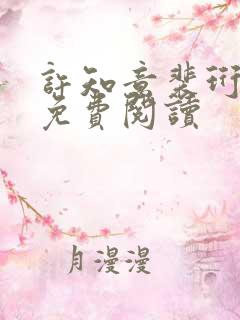 許知意裴珩
免費閱讀
月漫漫